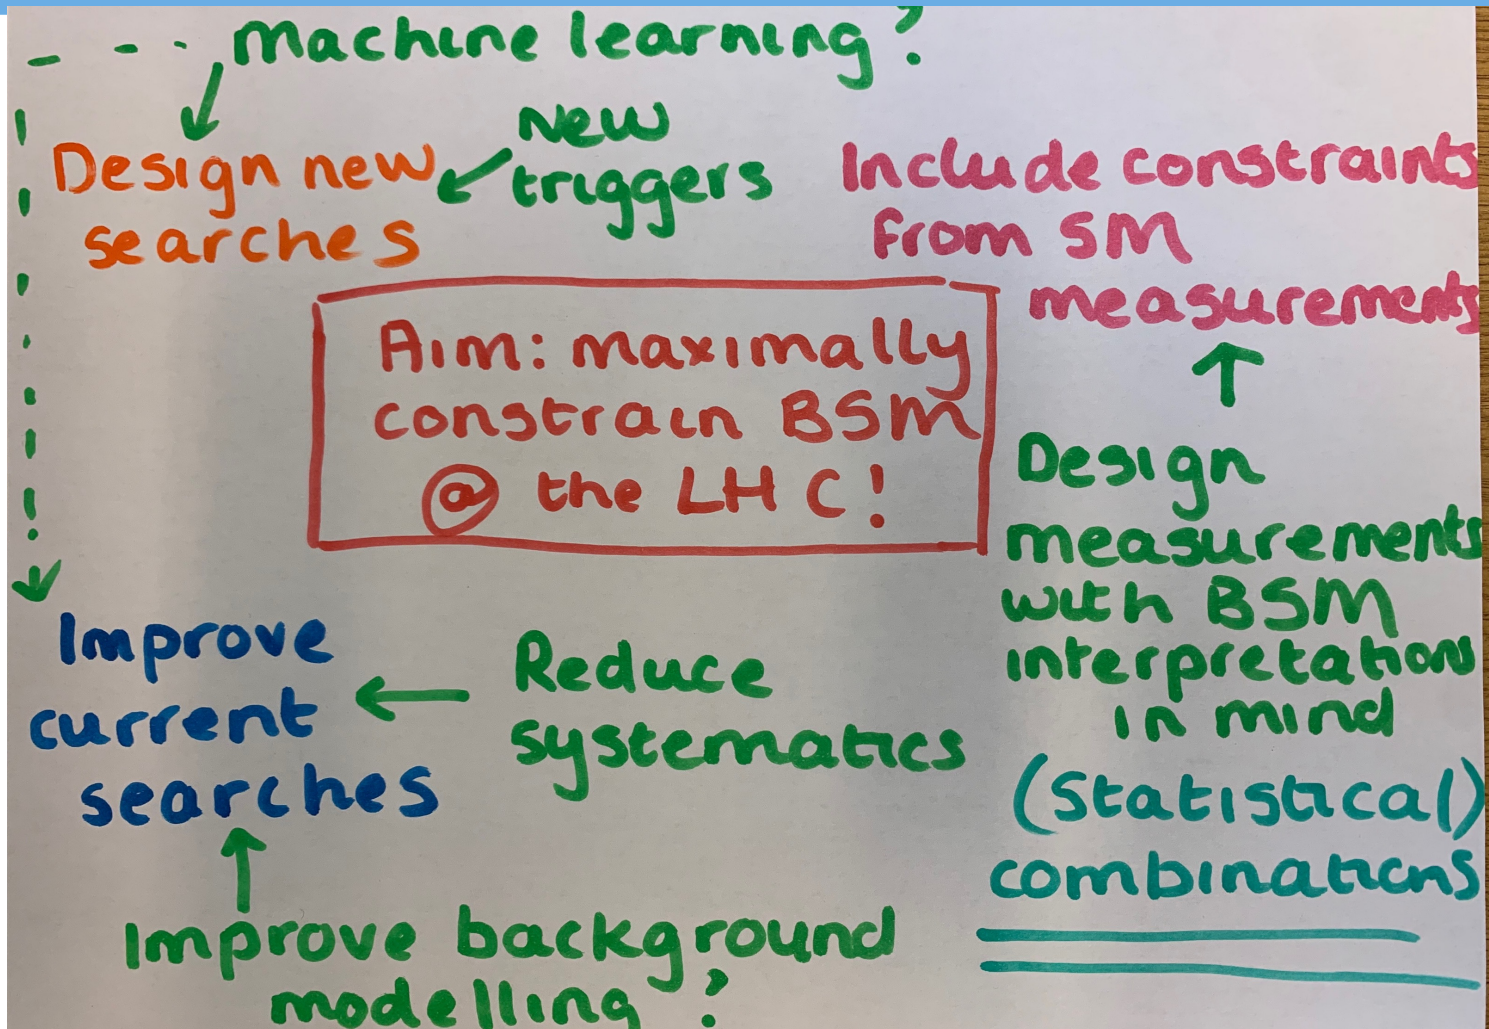 Machine learning?
Design new
searches
New
triggers
Include constraints
from SM
measurements
Aim: maximally
constrain BSM
@ the LHC!
Design
measurements
with BSM
interpretations
in mind
Improve
current
searches
Reduce
systematics
(Statistical)
combinations
Improve background
modelling?